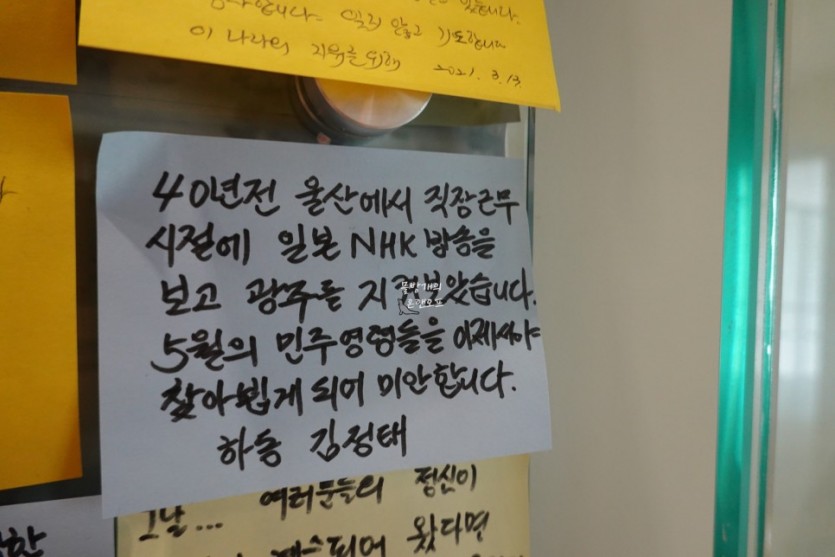 않고 기도합니다
이 나라의 지유를 위해 2021. 3. 13.
40년전 울산에서 직장근무
시절에 일본 NHK 방송을
보고 광주를 지켜보았습니다.
5월의 민주영령들을 이제서야
찾아뵙게 되어 미안합니다.
하동 김정태
그날... 여러분들의 정신이
되어 왔다면